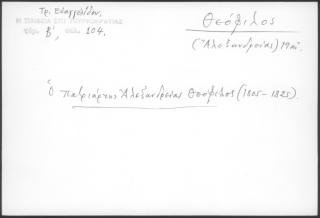 Τρ. Ευαγγελίδου,
Η ΠΑΙΔΕΙΑ ΕΠΙ ΤΟΥΡΚΟΚΡΑΤΙΑΣ
τόμ. Β', σελ. 104.
Θεόφιλος
(Ἀλεξανδρείας) 19ος
Ὁ πατριάρχης Ἀλεξανδρείας Θεόφιλος (1805-1825).